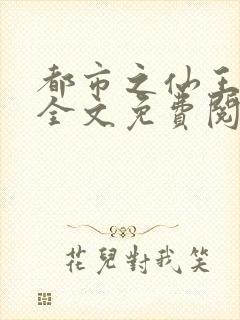 都市之仙王
全文免費閱
花兒對我笑